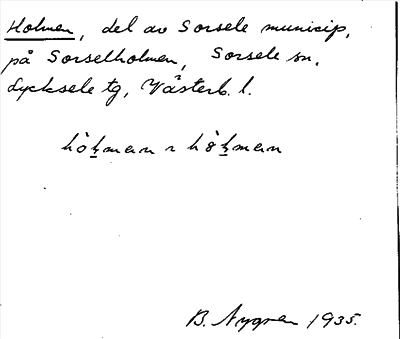 Holmen, del av Sorsele municip,
på Sorselholmen, Sorsele sn,
Lycksele tg, Västerb. l.
B. Nygren 1935.